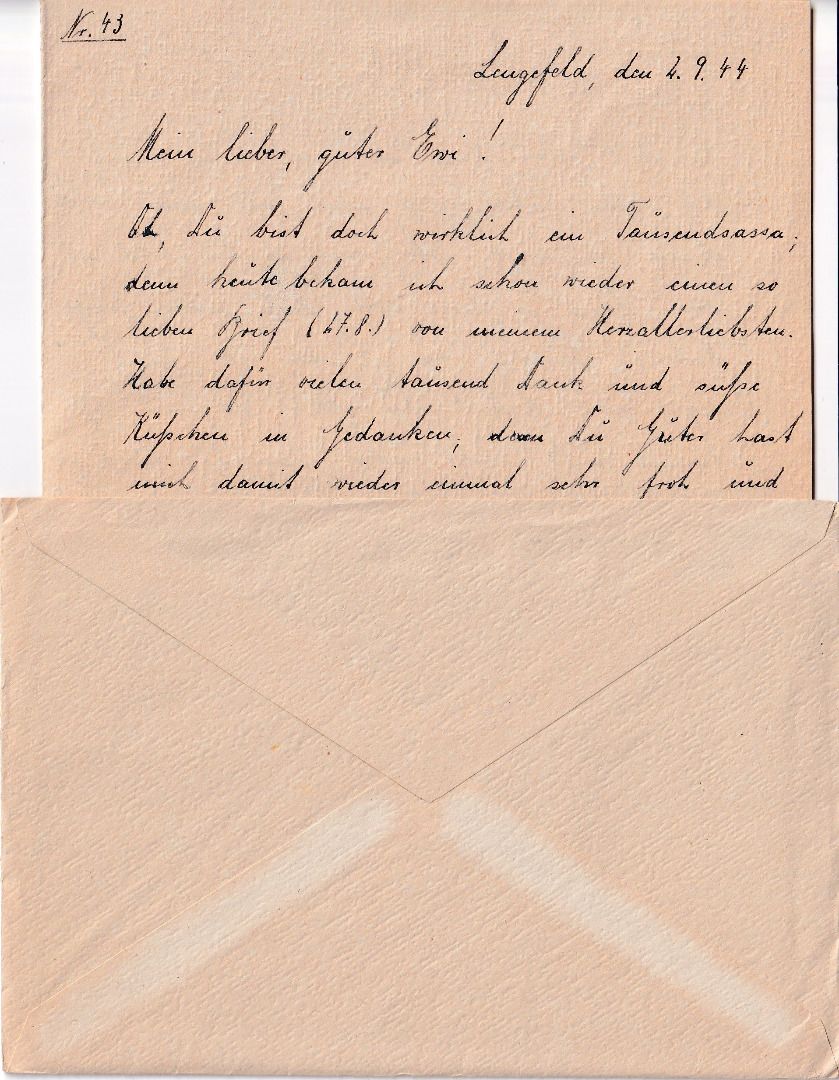 Nr. 43
Lengefeld, den 2. 9. 44
Mein lieber, guter Erwi!
Oh, Du bist doch wirklich ein Tausendsassa,
denn heute bekam ich schon wieder einen so
lieben Brief (27.8.) von meinem Herzallerliebsten.
Habe dafür vielen tausend Dank und süße
Küßchen in Gedanken, denn Du Guter hast
mich damit wieder einmal sehr froh und